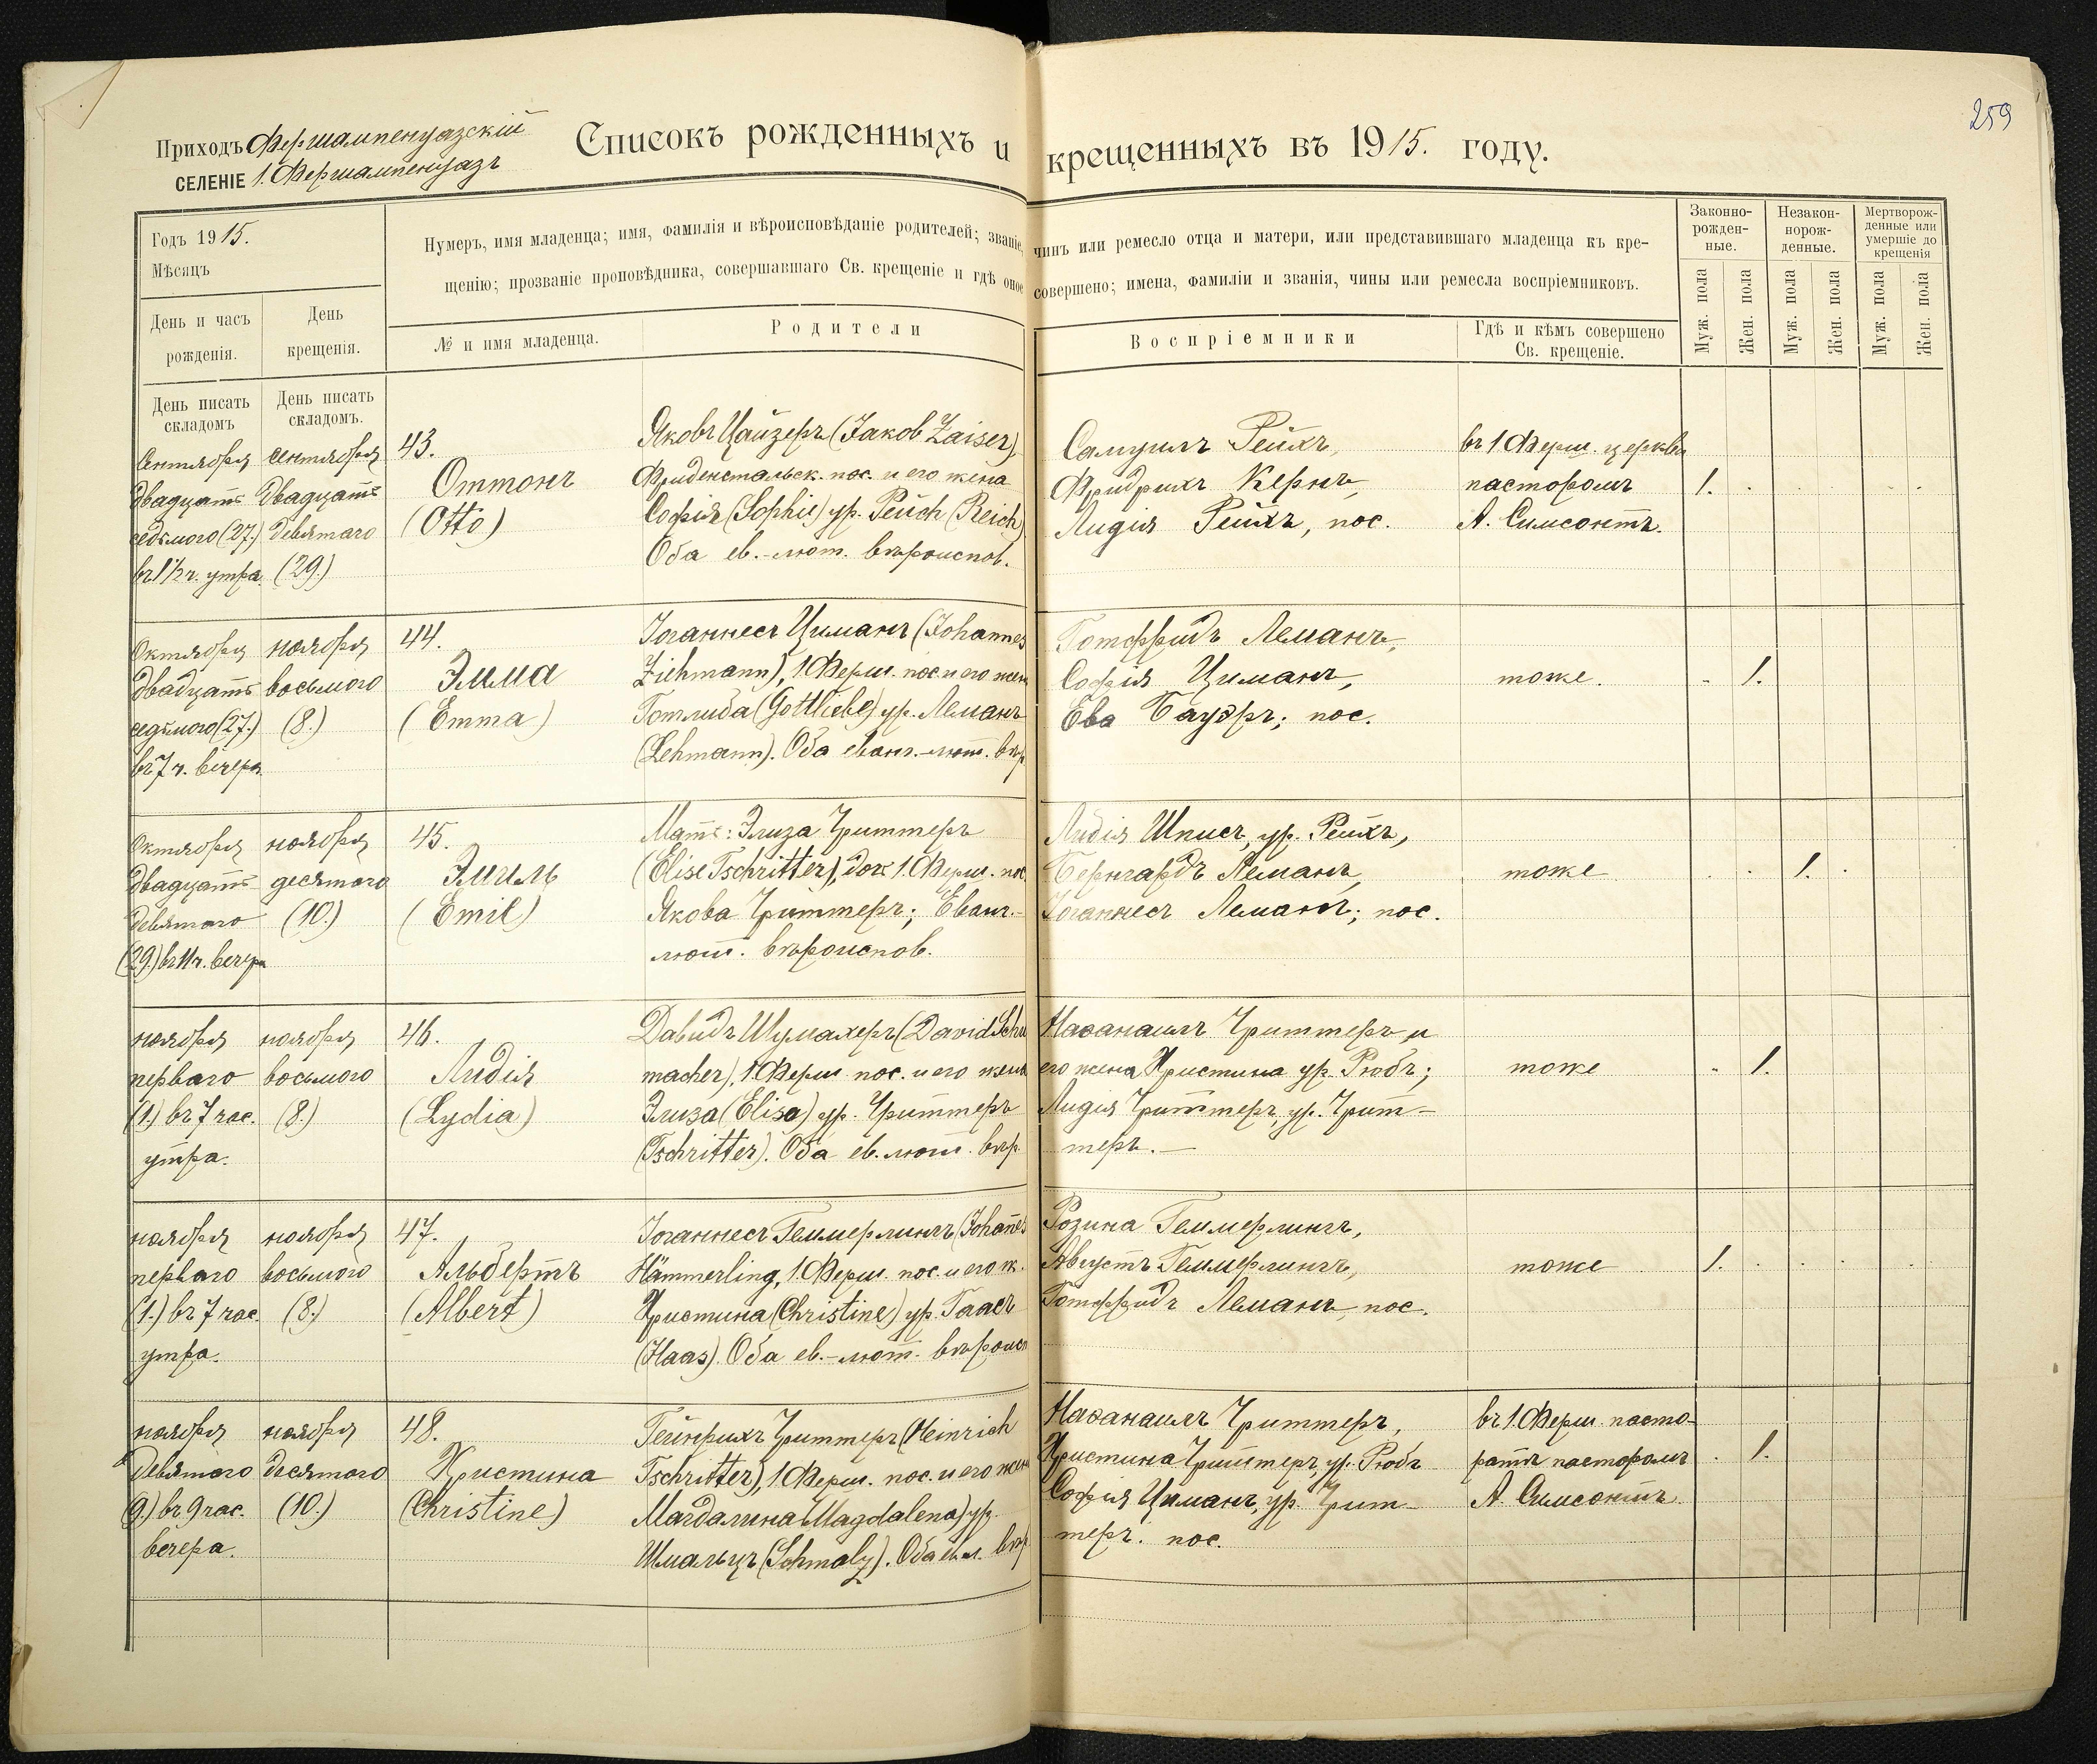 259
Приходъ Фершампенуазскій
СЕЛЕНІЕ 1. Фершампенуазъ
Списокъ рожденныхъ и крещенныхъ въ 1915. году.
Годъ 1915.
Мѣсяцъ
День и часъ рожденія.
День крещенія.
Нумеръ, имя младенца; имя, фамилія и вѣроисповѣданіе родителей; званіе, чинъ или ремесло отца и матери, или представившаго младенца къ кре-
щенію; прозваніе проповѣдника, совершавшаго Св. крещеніе и гдѣ оное совершено; имена, фамиліи и званія, чины или ремесла воспріемниковъ.
№ и имя младенца.
Родители
Воспріемники
Гдѣ и кѣмъ совершено
Св. крещеніе.
Законно-
рожден-
ные.
Незакон-
норож-
денные.
Мертворож-
денные или
умершіе до
крещенія
Муж. пола
Жен. пола
Муж. пола
Жен. пола
Муж. пола
Жен. пола
День писать
складомъ
День писать
складомъ.
Сентября
двадцать
седьмого (27.)
въ 1½ ч. утра
Сентября
двадцать
девятаго
(29.)
43.
Оттонъ
(Otto)
Яковъ Цайзеръ (Jakob Zaiser)
Фриденстальск. пос. и его жена
Софія (Sophie) ур. Рейch (Reich)
Оба ев.-лют. вѣроиспов.
Самуилъ Рейхъ,
Фридрихъ Кернъ,
Лидія Рейхъ, пос.
въ 1 Ферш. церкви
пасторомъ
А. Симсонтъ.
1.
Октября
двадцать
седьмого (27.)
въ 7 ч. вечера
ноября
восьмого
(8.)
44.
Эмма
(Emma)
Іоганнесъ Циманъ (Johannes
Ziehmann), 1 Ферш. пос. и его жена
Готлиба (Gottliebe) ур. Леманъ
(Lehmann). Оба еванг.-лют. вѣр
Готфридъ Леманъ,
Софія Циманъ,
Ева Бауэръ; пос.
тоже.
1.
Октября
двадцать
девятаго
(29.) въ 11 ч. вечера
ноября
десятаго
(10.)
45.
Эмиль
(Emil)
Мать: Элиза Чриттеръ
(Elise Tschritter), доч 1. Ферш. пос.
Якова Чриттеръ; Еванг.-
лют. вѣроиспов.
Лидія Шписъ, ур. Рейхъ,
Бернгардъ Леманъ,
Іоганнесъ Леманъ; пос.
тоже
1.
ноября
перваго
(1.) въ 7 час.
утра.
ноября
восьмого
(8.)
46.
Лидія
(Lydia)
Давидъ Шумахеръ (David Schu
macher), 1. Ферш. пос. и его жена
Элиза (Elise) ур. Чриттеръ
(Tschritter). Оба ев. лют. вѣр.
Наѳанаилъ Чриттеръ и
его жена Христина ур. Рюбъ;
Лидія Чриттеръ, ур. Чрит-
теръ.
тоже
1.
ноября
перваго
(1.) въ 7 час.
утра.
ноября
восьмого
(8.)
47.
Альбертъ
(Albert)
Іоганнесъ Геммерлингъ (Johañes
Hämmerling, 1. Ферш. пос. и его ж.
Христина (Christine) ур. Гаасъ
(Haas). Оба ев.-лют. вѣроисп
Розина Геммерлингъ,
Августъ Геммерлингъ,
Готфридъ Леманъ, пос.
тоже
1.
ноября
девятаго
(9.) въ 9 час.
вечера.
ноября
десятаго
(10.)
48.
Христина
(Christine)
Гейнрихъ Чриттеръ (Heinrich
Tschritter), 1 Ферш. пос. и его жена
Магдалина (Magdalena) ур.
Шмальцъ (Schmalz). Оба ев. л. вѣр
Наѳанаилъ Чриттеръ,
Христина Чриттеръ, ур. Рюбъ
Софія Циманъ, ур. Чрит-
теръ. пос.
въ 1. Ферш. пасто-
ратѣ пасторомъ
А. Симсонтъ.
1.